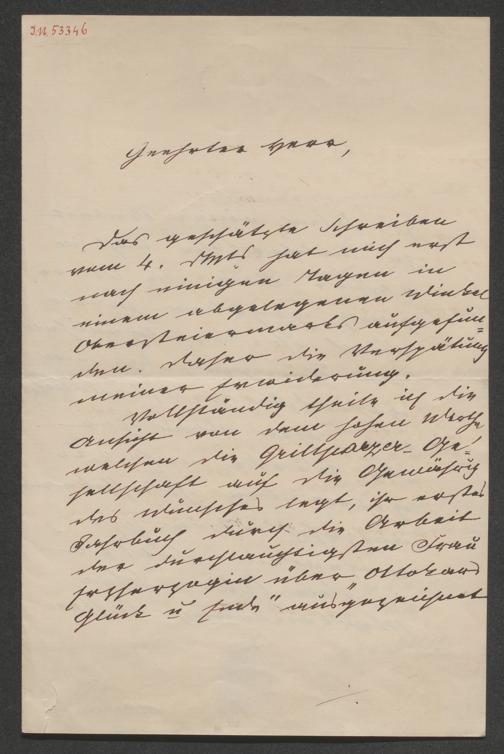 J.N. 53346
Geehrter Herr,
Das geschätzte Schreiben
vom 4. Mts hat mich erst
nach einigen Tagen in
einem abgelegenen Winkel
Obersteiermarks aufgefun-
den. Daher die Verspätung
meiner Erwiderung.
Vollständig theile ich die
Ansicht von dem hohen Werthe,
welchen die Grillparzer-Ge-
sellschaft auf die Gewährung
des Wunsches legt, ihr erstes
Jahrbuch durch die Arbeit
der durchlauchtigsten Frau
Erzherzogin über „Ottokars
Glück u Ende" ausgezeichnet